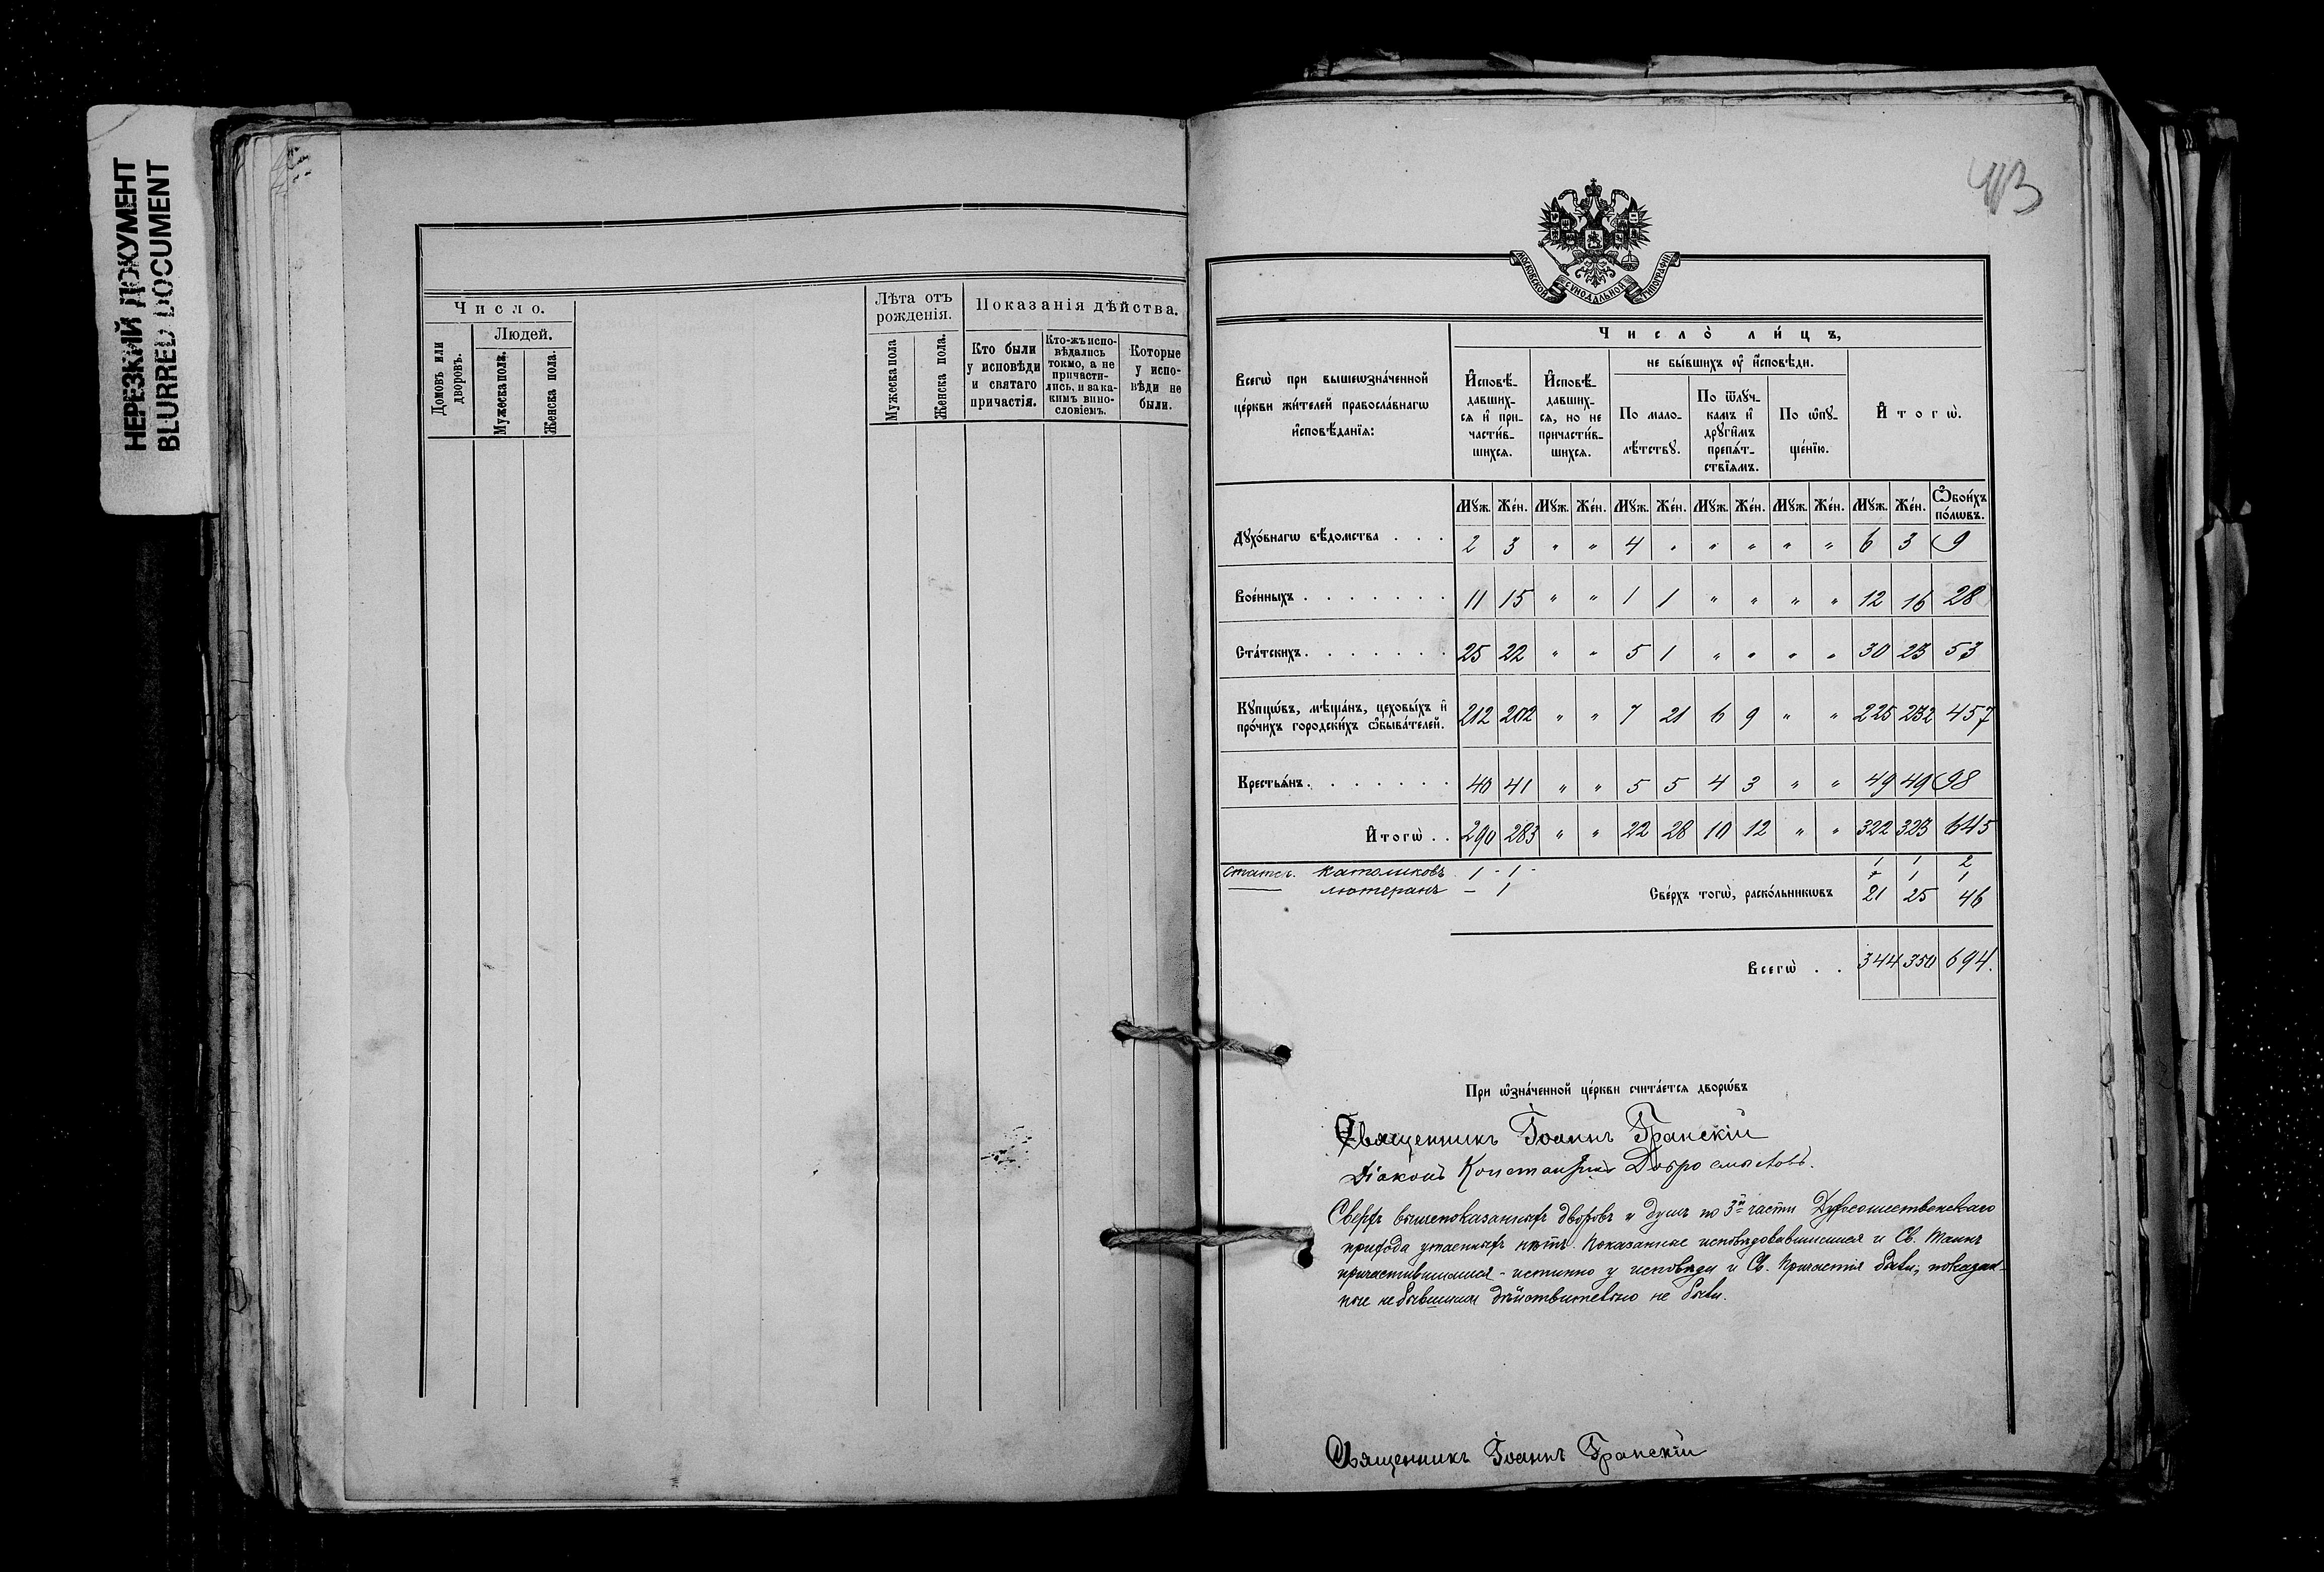 НЕРЕЗКИЙ ДОКУМЕНТ
BLURRED DOCUMENT
Число.
Людей.
Домовъ или дворовъ.
Мужеска пола.
Женска пола.
Лѣта отъ рожденія.
Мужеска пола
Женска пола.
Показанія дѣйства.
Кто были
у исповѣди
и святаго
причастія.
Кто-жъ испо-
вѣдались
токмо, а не
причасти-
лись, и за ка-
кимъ вино-
словіемъ.
Которые
у испо-
вѣди не
были.
413
МОСКОВСКОЙ СУНОДАЛЬНОЙ ТИПОГРАФІИ
Всегѡ̀ при вышеѡзна́ченной
це́ркви жи́телей правосла́внагѡ
и҆сповѣ́данїѧ:
Число̀ ли́цъ,
И҆сповѣ́-
давших-
сѧ и҆ при-
части́в-
шихсѧ.
И҆сповѣ́-
давших-
сѧ, но не
причасти́в-
шихсѧ.
не бы́вшихъ ᲂу҆ и҆́сповѣди.
По мало-
лѣ́тствꙋ.
По ѿлꙋ́ч-
камъ и҆
дрꙋги̑мъ
препѧ́т-
ствїѧмъ.
По ѡ҆пꙋ-
ще́нїю.
И҆тогѡ̀.
Мꙋж. Же́н. Мꙋж. Же́н. Мꙋж. Же́н. Мꙋж. Же́н. Мꙋж. Же́н. Мꙋж. Же́н. Ѻ҆бои́хъ по́лѡвъ.
Дꙋхо́внагѡ вѣ́домства . . . 2 3 " " 4 " " " " " 6 3 9
Вое́нныхъ . . . . . . . 11 15 " " 1 1 " " " " 12 16 28
Ста́тскихъ . . . . . . . 25 22 " " 5 1 " " " " 30 23 53
Кꙋпцѡ́въ, мѣща́нъ, цеховы́хъ и҆
про́чихъ городски́хъ ѡ҆быва́телей. 212 202 " " 7 21 6 9 " " 225 232 457
Крестьѧ́нъ . . . . . . . 40 41 " " 5 5 4 3 " " 49 49 98
И҆тогѡ̀ . . 290 283 " " 22 28 10 12 " " 322 323 645
Статск. католиковъ 1 - 1 - 1 1 2
— лютеранъ — 1 1 1
Све́рхъ тогѡ̀, раско́льникѡвъ 21 25 46
Всегѡ̀ . . 344 350 694.
При ѡ҆зна́ченной це́ркви счита́етсѧ дворѡ́въ
Священникъ Іоаннъ Гранскій
Діаконъ Константинъ Добросмысловъ.
Сверхъ вышепоказанныхъ дворовъ и душъ по 3й части Духосошественскаго
прихода утаенныхъ нѣтъ. Показанные исповѣдовавшимися и Св. Таинъ
причастившимися - истинно у исповѣди и Св. Причастія были; показан-
ные не бывшими дѣйствительно не были.
Священникъ Іоаннъ Гранскій